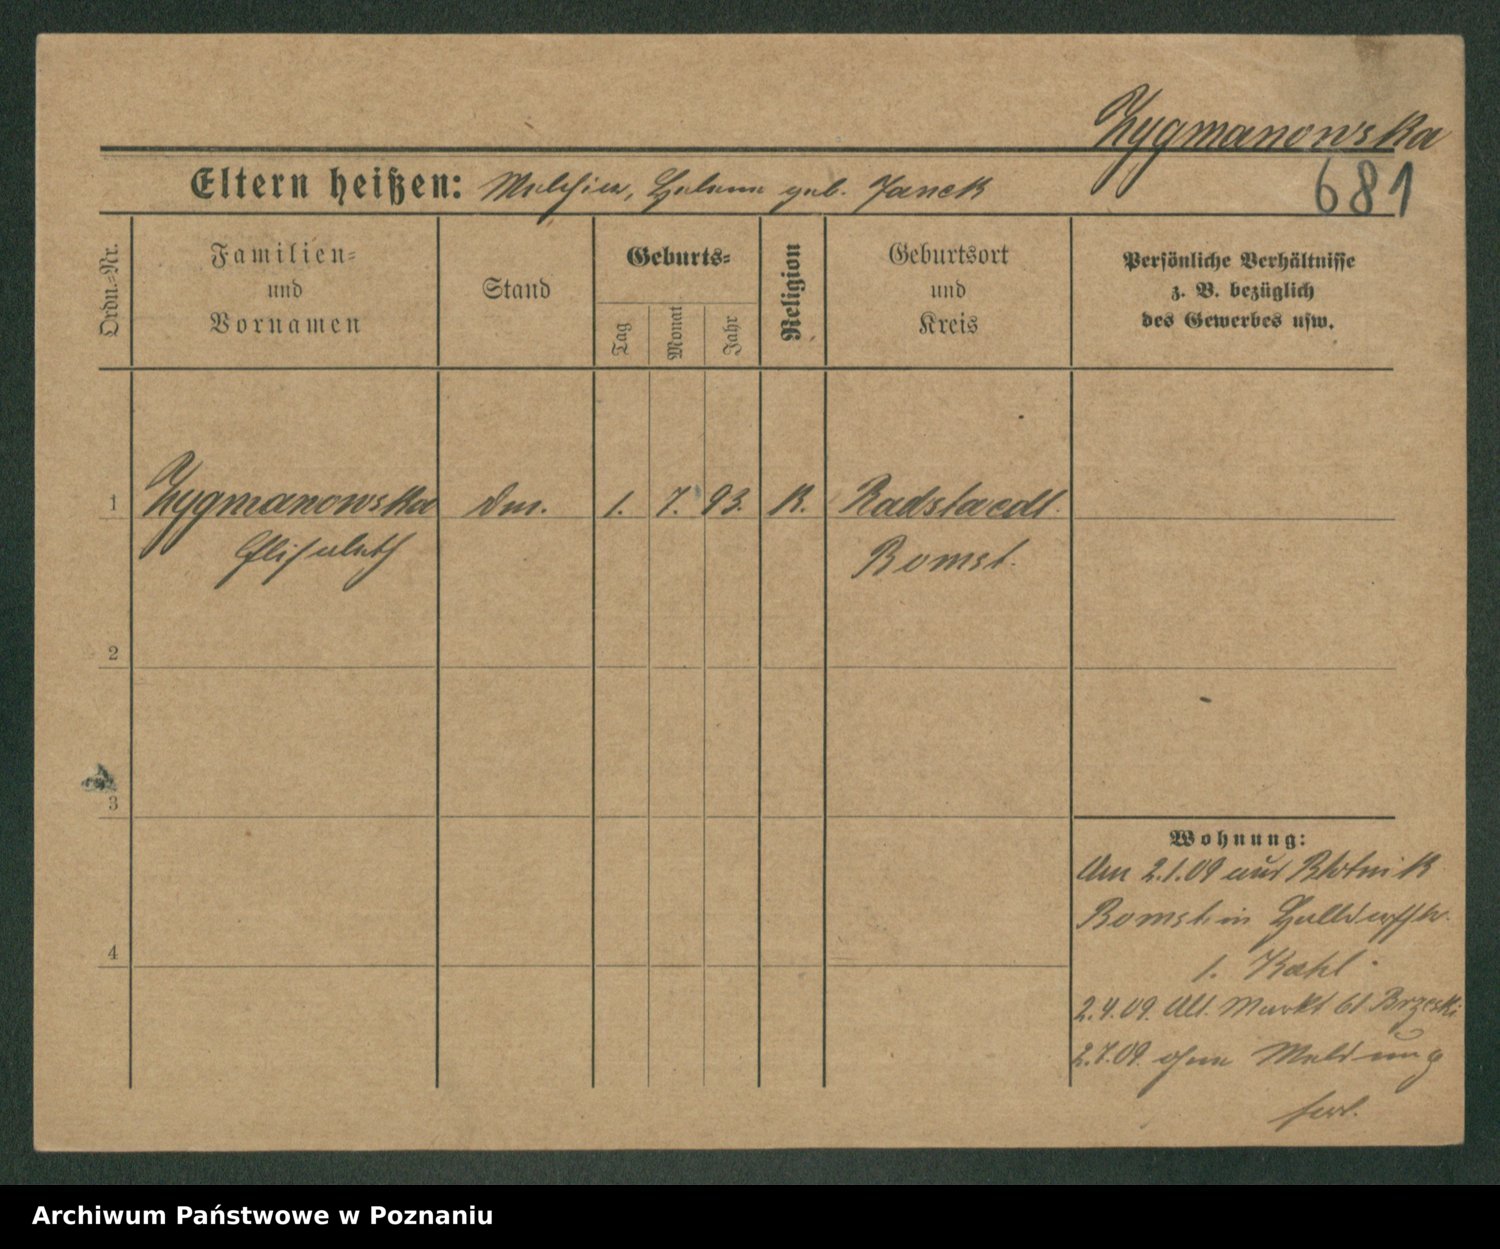 Zygmanowska
681
Eltern heißen: Melchior, Helena geb. Janek
Ordn.-Nr.
Familien-
und
Vornamen
Stand
Geburts-
Tag
Monat
Jahr
Religion
Geburtsort
und
Kreis
Persönliche Verhältnisse
z. B. bezüglich
des Gewerbes usw.
1 Zygmanowska Dm. 1. 7. 93. K. Radstaedt
Elisabeth Bomst.
2
3
4
Wohnung:
Am 2.1.09 aus Blotnik
Bomst in
1. Kahl
2.4.09. Alt. Markt 61 Brzeski
2.7.09. ohne Meldung
fort.
Archiwum Państwowe w Poznaniu